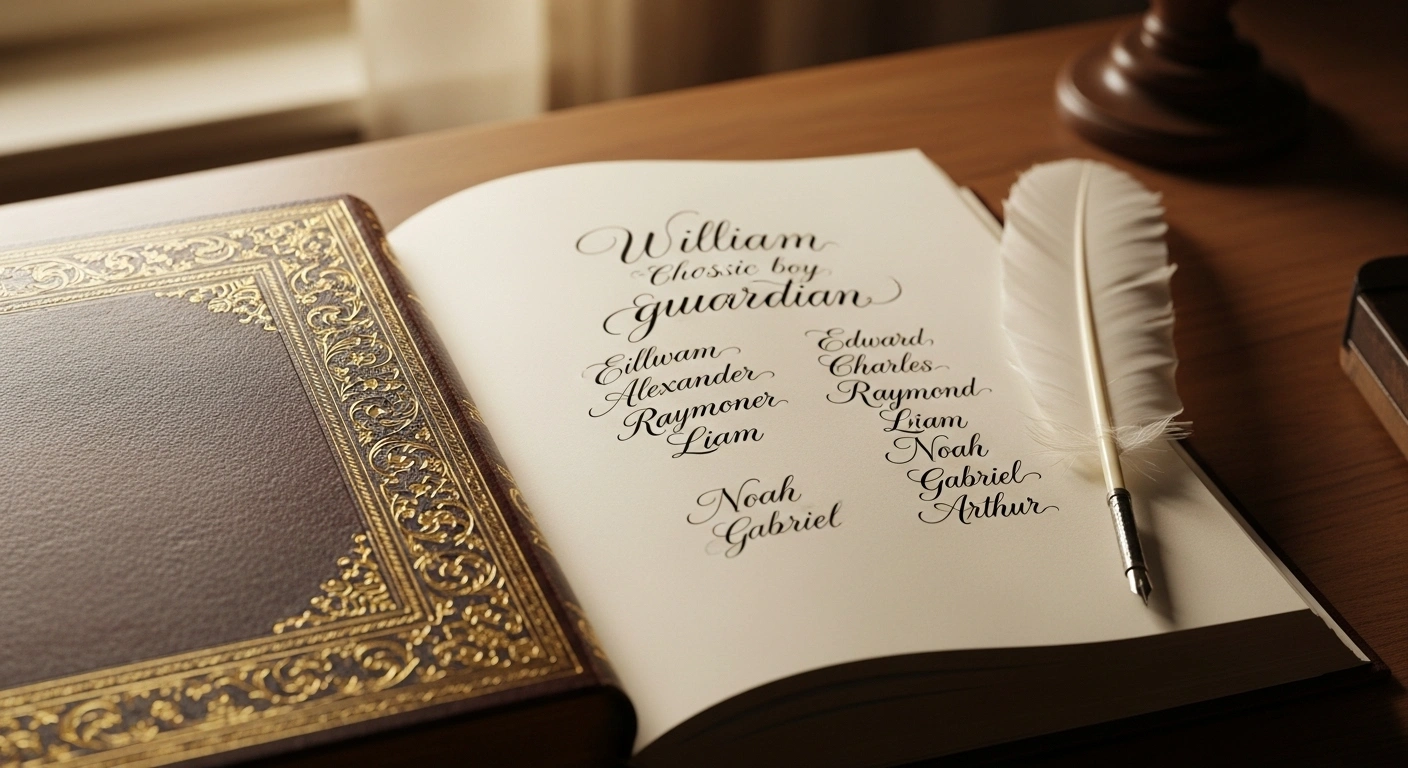 William
Chossic boy
guuardian
Eillwam
Alexander
Raymoner
Liam
Noah
Gabriel
Edward
Charles
Raymond
Liam
Noah
Gabriel
Arthur